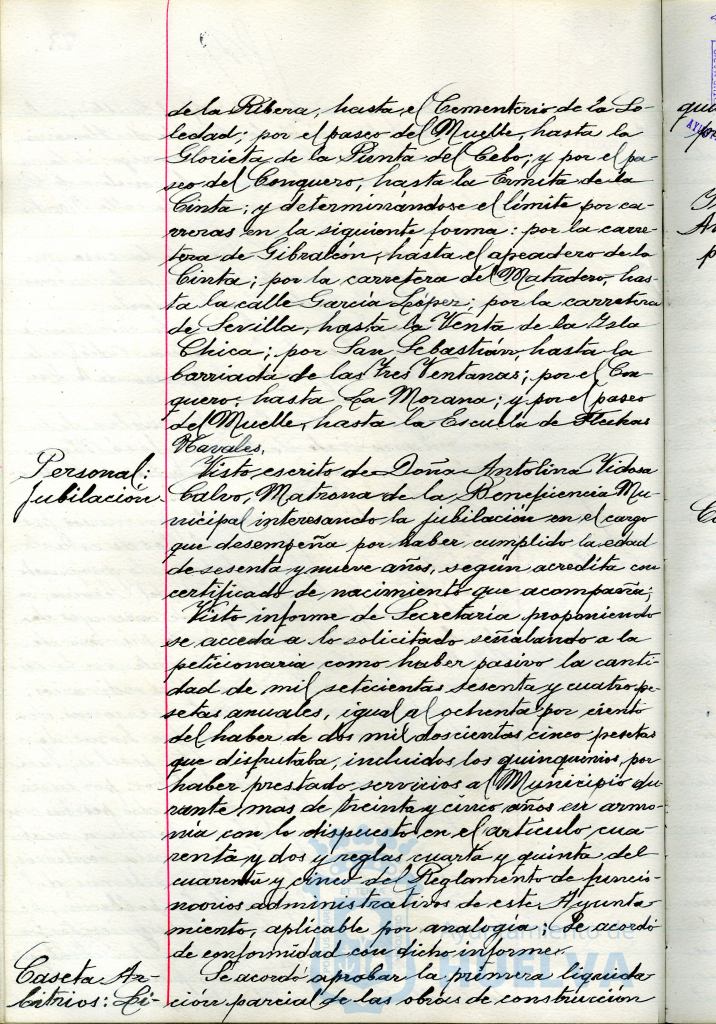 de la Ribera, hasta el Cementerio de la So-
ledad; por el paseo del Muelle, hasta la
Glorieta de la Punta del Cebo; y por el pa-
seo del Conquero, hasta la Ermita de la
Cinta; y determinándose el límite por ca-
rreras en la siguiente forma: por la carre-
tera de Gibraleón, hasta el apeadero de la
Cinta; por la carretera del Matadero, has-
ta la calle García López; por la carretera
de Sevilla, hasta la Venta de la Isla
Chica; por San Sebastián, hasta la
barriada de las Tres Ventanas; por el Con-
quero, hasta La Morana; y por el paseo
del Muelle, hasta la Escuela de Flechas
Navales.
Personal:
Jubilación
Visto escrito de Doña Antolina Vidosa
Calvo, Matrona de la Beneficencia Mu-
nicipal interesando la jubilación en el cargo
que desempeña por haber cumplido la edad
de sesenta y nueve años, según acredita con
certificado de nacimiento que acompaña;
Visto informe de Secretaría proponiendo
se acceda a lo solicitado señalando a la
peticionaria como haber pasivo la canti-
dad de mil seticientas sesenta y cuatro pe-
setas anuales, igual al ochenta por ciento
del haber de dos mil doscientas cinco pesetas
que disfrutaba, incluidos los quinquenios, por
haber prestado servicios al Municipio du-
rante mas de treinta y cinco años en armo-
nía con lo dispuesto en el artículo cua-
renta y dos y reglas cuarta y quinta del
cuarenta y cinco del Reglamento de funcio-
narios administrativos de este Ayunta-
miento, aplicable por analogía; Se acordó
de conformidad con dicho informe.
Caseta Ar-
bitrios: Li-
Se acordó aprobar la primera liquida
ción parcial de las obras de construcción
Ayuntamiento de
HUELVA